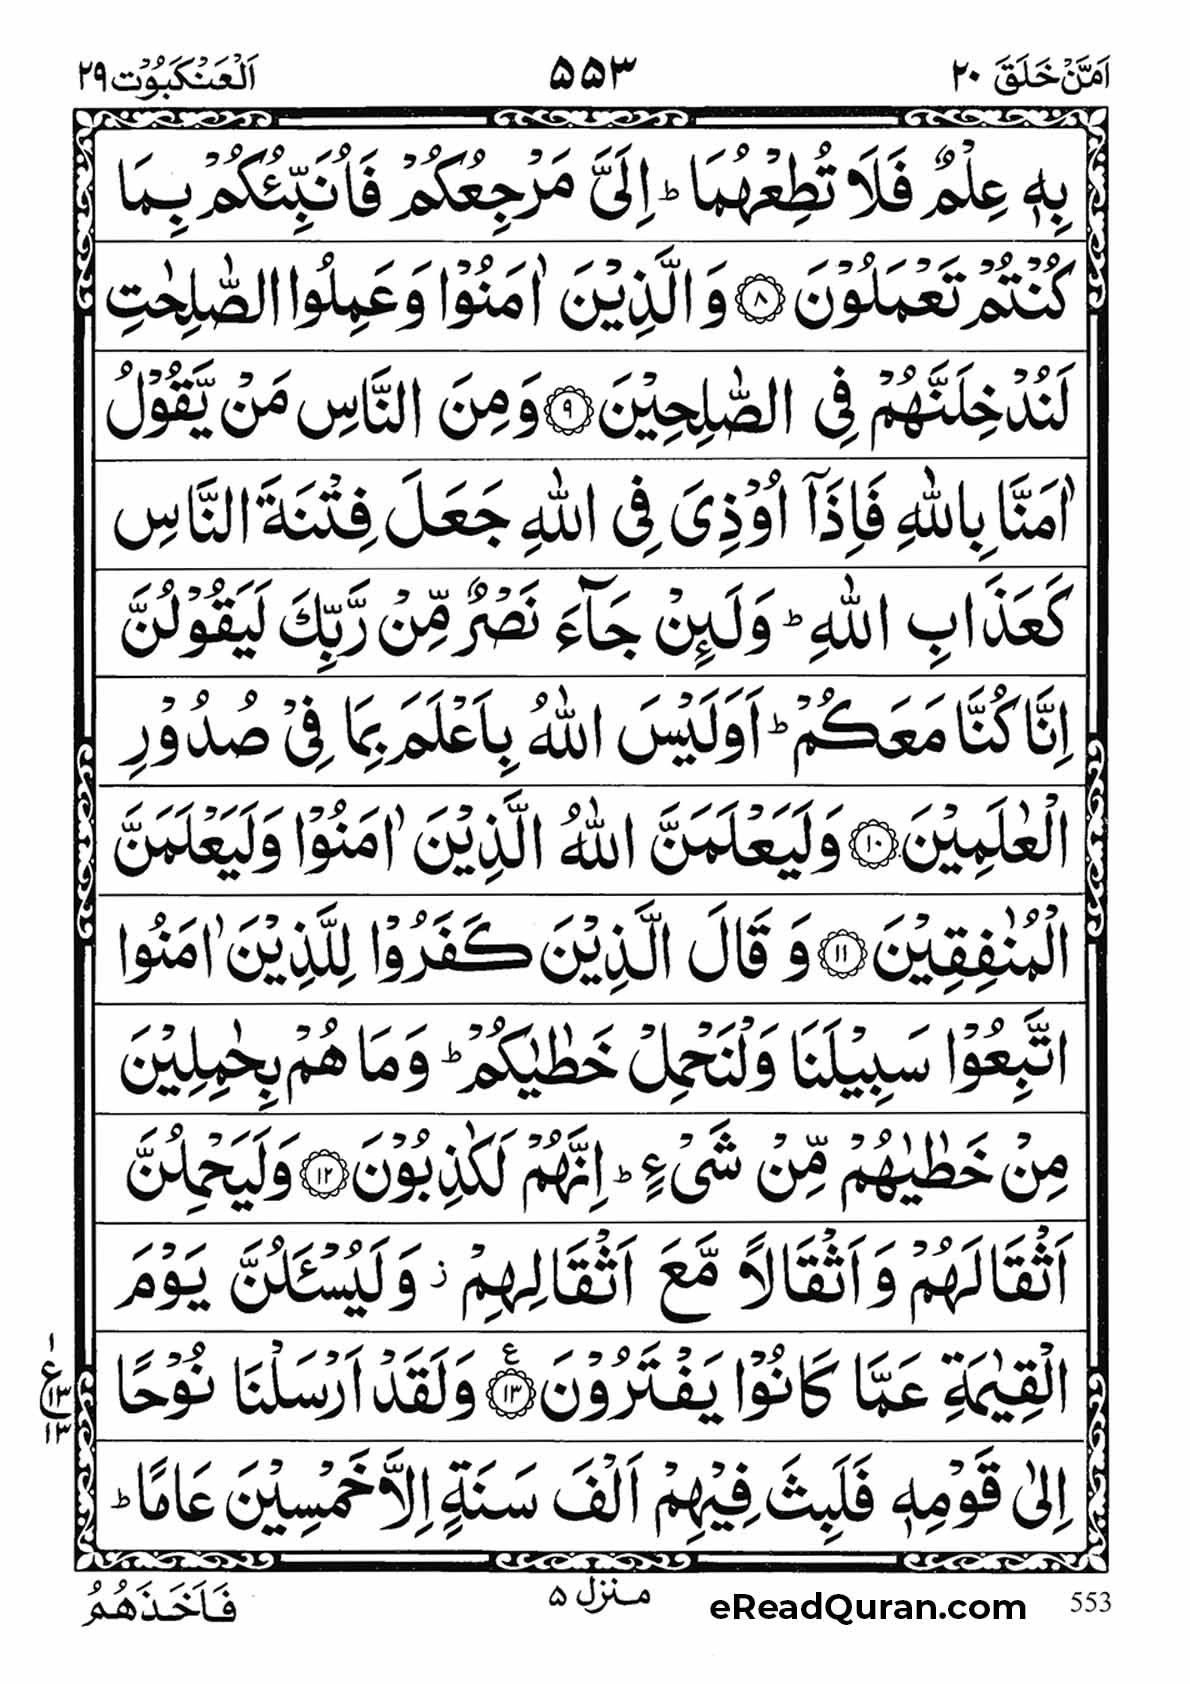 اَمَّنْ خَلَقَ ٢٠
٥٥٣
اَلْعَنْكَبُوْت ٢٩
بِهٖ عِلْمٌ فَلَا تُطِعْهُمَا ؕ اِلَیَّ مَرْجِعُكُمْ فَاُنَبِّئُكُمْ بِمَا
كُنْتُمْ تَعْمَلُوْنَ ۝٨ وَالَّذِيْنَ اٰمَنُوْا وَعَمِلُوا الصّٰلِحٰتِ
لَنُدْخِلَنَّهُمْ فِی الصّٰلِحِيْنَ ۝٩ وَمِنَ النَّاسِ مَنْ يَّقُوْلُ
اٰمَنَّا بِاللّٰهِ فَاِذَاۤ اُوْذِیَ فِی اللّٰهِ جَعَلَ فِتْنَةَ النَّاسِ
كَعَذَابِ اللّٰهِ ؕ وَلَئِنْ جَآءَ نَصْرٌ مِّنْ رَّبِّكَ لَيَقُوْلُنَّ
اِنَّا كُنَّا مَعَكُمْ ؕ اَوَلَيْسَ اللّٰهُ بِاَعْلَمَ بِمَا فِیْ صُدُوْرِ
الْعٰلَمِيْنَ ۝١٠ وَلَيَعْلَمَنَّ اللّٰهُ الَّذِيْنَ اٰمَنُوْا وَلَيَعْلَمَنَّ
الْمُنٰفِقِيْنَ ۝١١ وَقَالَ الَّذِيْنَ كَفَرُوْا لِلَّذِيْنَ اٰمَنُوا
اتَّبِعُوْا سَبِيْلَنَا وَلْنَحْمِلْ خَطٰيٰكُمْ ؕ وَمَا هُمْ بِحٰمِلِيْنَ
مِنْ خَطٰيٰهُمْ مِّنْ شَیْءٍ ؕ اِنَّهُمْ لَكٰذِبُوْنَ ۝١٢ وَلَيَحْمِلُنَّ
اَثْقَالَهُمْ وَاَثْقَالًا مَّعَ اَثْقَالِهِمْ ز وَلَيُسْـَٔلُنَّ يَوْمَ
الْقِيٰمَةِ عَمَّا كَانُوْا يَفْتَرُوْنَ ۝١٣ ع وَلَقَدْ اَرْسَلْنَا نُوْحًا
١
ع
١٣
١٣
اِلٰی قَوْمِهٖ فَلَبِثَ فِيْهِمْ اَلْفَ سَنَةٍ اِلَّا خَمْسِيْنَ عَامًا ؕ
553
eReadQuran.com
منزل ٥
فَاَخَذَهُمُ